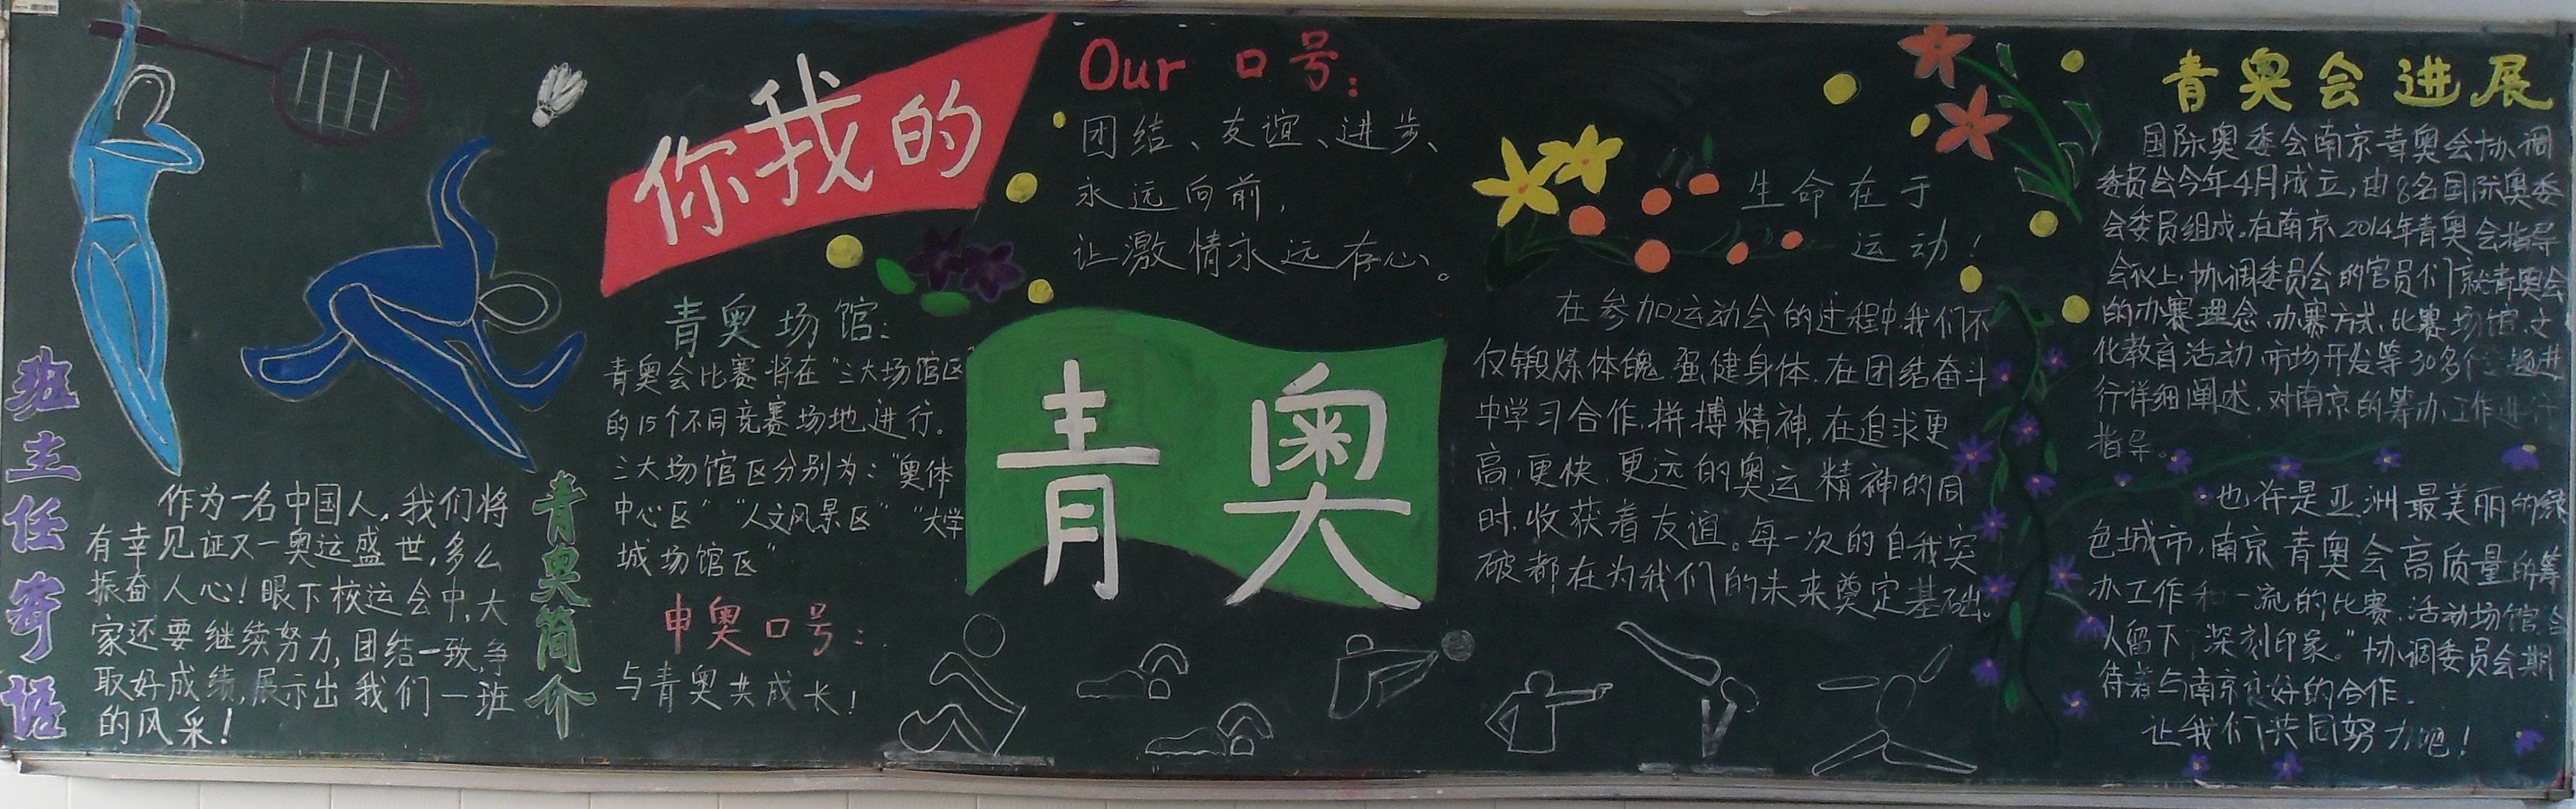 班主任寄语
作为一名中国人,我们将
有幸见证又一奥运盛世,多么
振奋人心!眼下校运会中,大
家还要继续努力,团结一致,争
取好成绩,展示出我们一班
的风采!
青奥简介
你我的
青奥
青奥场馆:
青奥会比赛将在“三大场馆区”
的15个不同竞赛场地进行。
三大场馆区分别为:“奥体
中心区”“人文风景区”“大学
城场馆区”
申奥口号:
与青奥共成长!
Our 口号:
团结、友谊、进步、
永远向前,
让激情永远存心。
生命在于
运动!
在参加运动会的过程中,我们不
仅锻炼体魄,强健身体,在团结奋斗
中学习合作,拼搏精神,在追求更
高,更快,更远的奥运精神的同
时,收获着友谊。每一次的自我突
破都在为我们的未来奠定基础。
青奥会进展
国际奥委会南京青奥会协调
委员会今年4月成立,由8名国际奥委
会委员组成。在南京2014年青奥会指导
会议上,协调委员会的官员们就青奥会
的办赛理念,办赛方式,比赛场馆,文
化教育活动,市场开发等30多个 题进
行详细阐述,对南京的筹办工作进行
指导。
也许是亚洲最美丽的绿
色城市,南京青奥会高质量的筹
办工作和一流的比赛,活动场馆会
人留下“深刻印象。”协调委员会期
待着与南京良好的合作。
让我们共同努力吧!